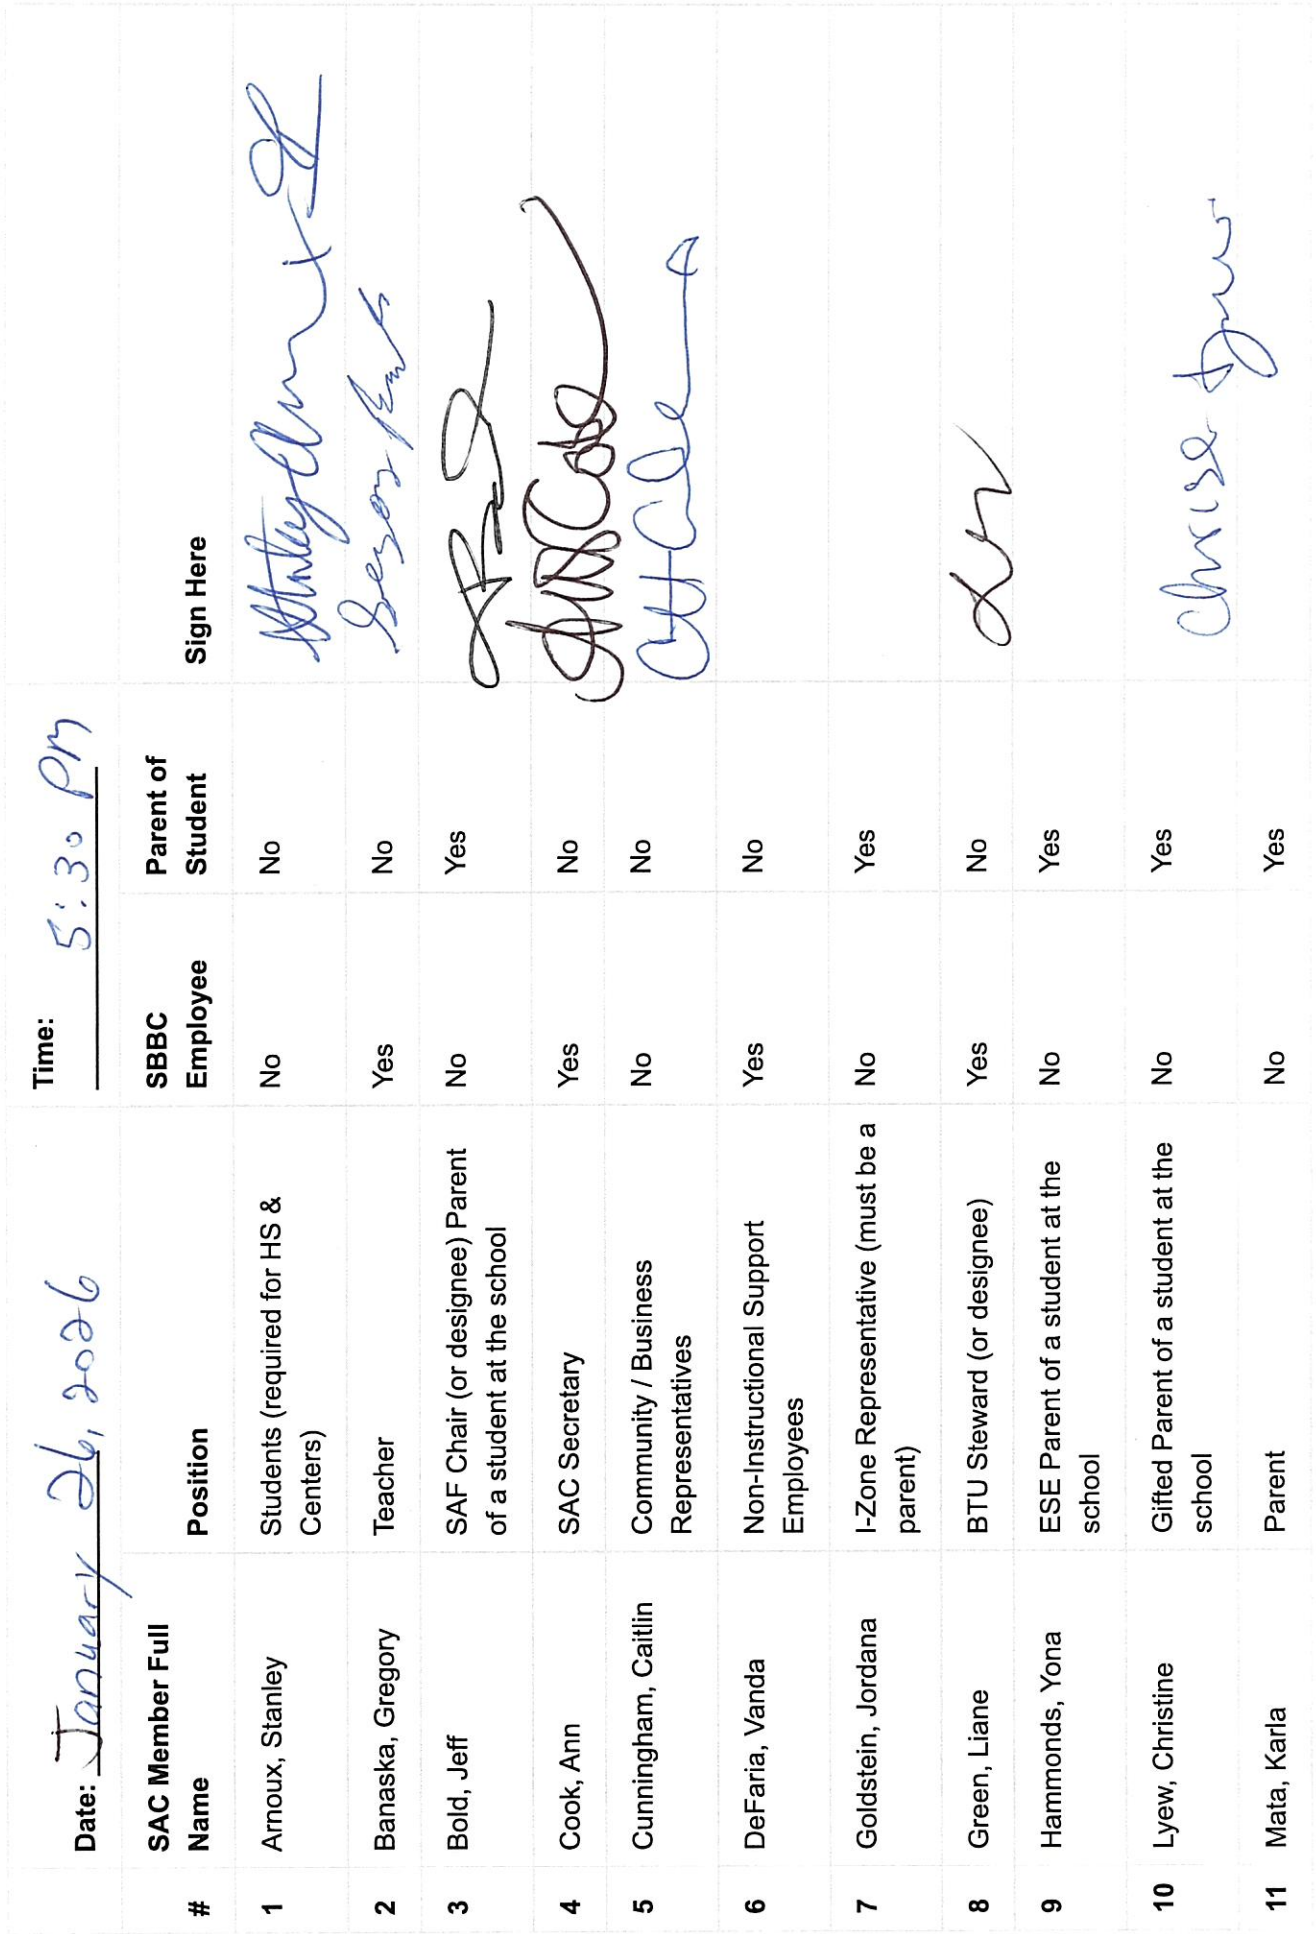 Date: January 26, 2026 Time: 5:30 PM
# SAC Member Full Name Position SBBC Employee Parent of Student Sign Here
1 Arnoux, Stanley Students (required for HS & Centers) No No
2 Banaska, Gregory Teacher Yes No
3 Bold, Jeff SAF Chair (or designee) Parent of a student at the school No Yes
4 Cook, Ann SAC Secretary Yes No
5 Cunningham, Caitlin Community / Business Representatives No No
6 DeFaria, Vanda Non-Instructional Support Employees Yes No
7 Goldstein, Jordana I-Zone Representative (must be a parent) No Yes
8 Green, Liane BTU Steward (or designee) Yes No
9 Hammonds, Yona ESE Parent of a student at the school No Yes
10 Lyew, Christine Gifted Parent of a student at the school No Yes
11 Mata, Karla Parent No Yes